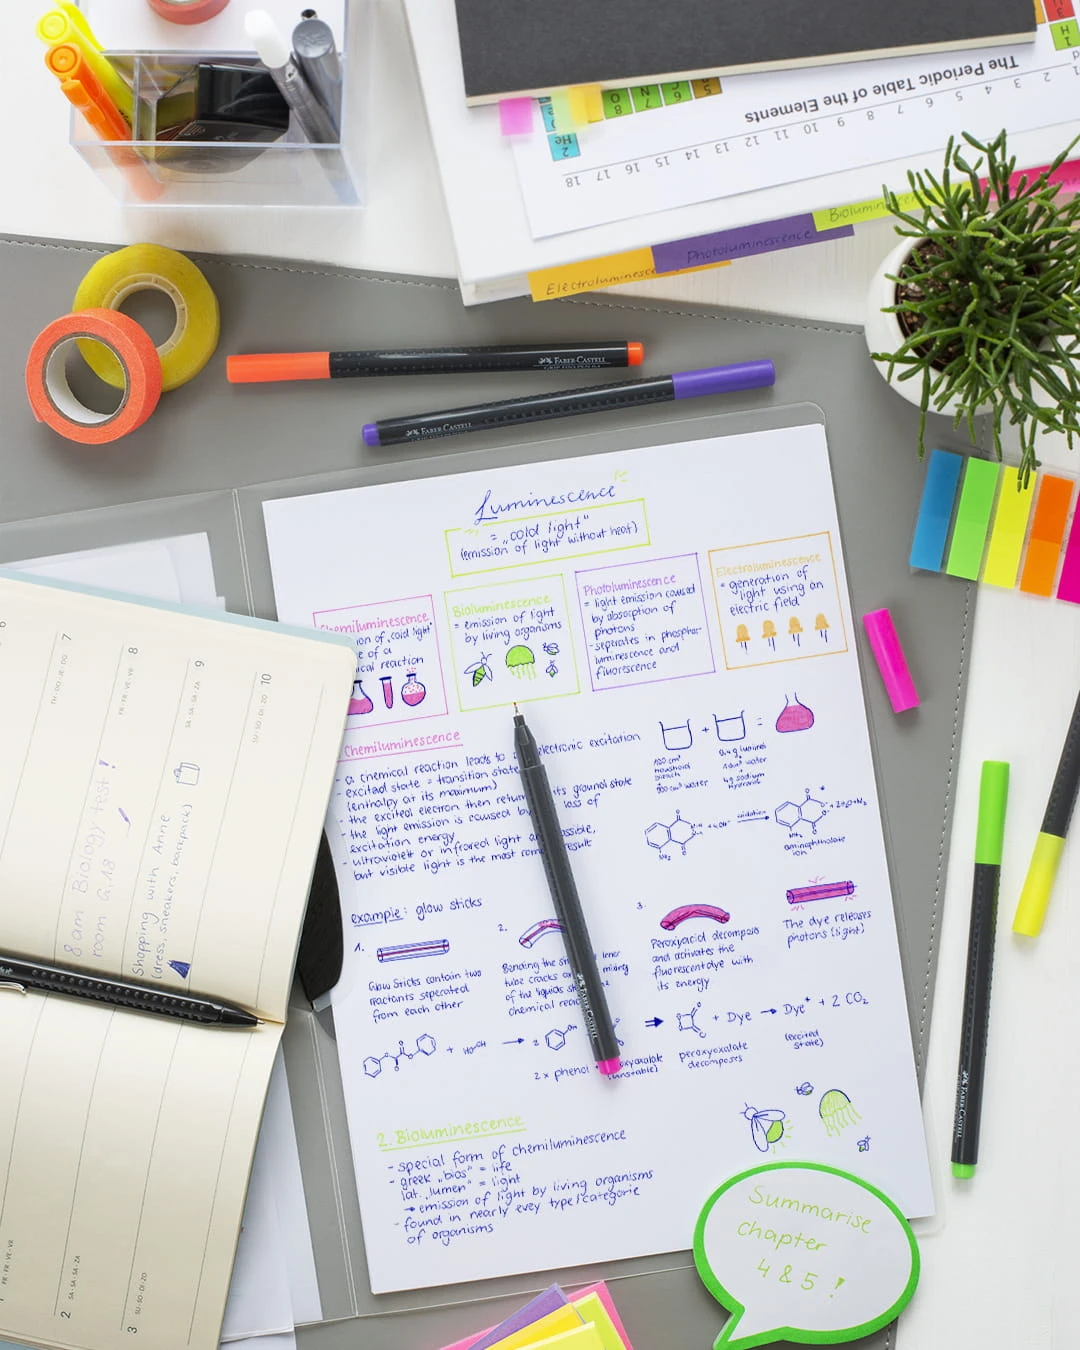 The Periodic Table of the Elements
1
2
3
4
5
6
7
8
9
10
11
12
13
14
15
16
17
18
H
He
2
5
6
7
8
N
O
Electroluminesce
Photoluminescence
Biolumin
FABER-CASTELL
FABER-CASTELL
Luminescence
= „cold light"
(emission of light without heat)
Chemiluminescence
ion of „cold light"
e of a
ical reaction
Bioluminescence
= emission of light
by living organisms
Photoluminescence
= light emission caused
by absorption of
photons
- seperates in phosphor-
luminescence and
fluorescence
Electroluminescence
= generation of
light using an
electric field
Chemiluminescence
- a chemical reaction leads to electronic excitation
- excited state = transition state
(enthalpy at its maximum)
- the excited electron then return its ground state
- the light emission is caused by loss of
excitation energy
- ultraviolett or infrared light a ssible,
but visible light is the most com result
+
=
household
bleach
water
luminol
water
+
4g sodium
hydroxid
NH₂
oxidation
NH₂
aminophthalate
ion
example: glow sticks
1.
Glow Sticks contain two
reactants seperated
from each other
2.
Bending the st inner
tube cracks a mixing
of the liquids st
chemical reac
3.
Peroxyacid decomposes
and activates the
fluorescent dye with
its energy
The dye releases
photons (light)
+ HO-OH → 2
2 x phenol +
(unstable)
+ Dye → Dye* + 2 CO₂
peroxyoxalate
decomposes
(excited
state)
2. Bioluminescence
- special form of chemiluminescence
- greek „bios" = life
lat. „lumen" = light
→ emission of light by living organisms
- found in nearly evey type/categorie
of organisms
Summarise
chapter
4 & 5 !
FABER-CASTELL
FABER-CASTELL
6
7
TH·DO·JE·DO
8
FR·FR·VE·VR
8 am Biology test!
room G.18
9
SA·SA·SA·ZA
Shopping with Anne
(dress, sneakers, backpack)
10
SU·SO·DI·ZO
1
FR·FR·VE·VR
2
SA·SA·SA·ZA
3
SU·SO·DI·ZO